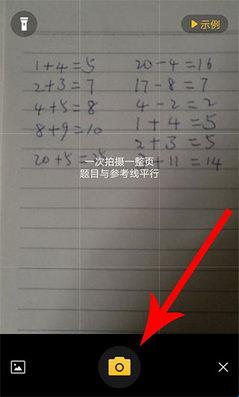 示例
1+4=5
2+3=7
4+5=8
8+9=10
20+5=
20-4=16
17-8=7
4-2=2
1+4=5
2+3=5
+11=14
一次拍摄一整页
题目与参考线平行